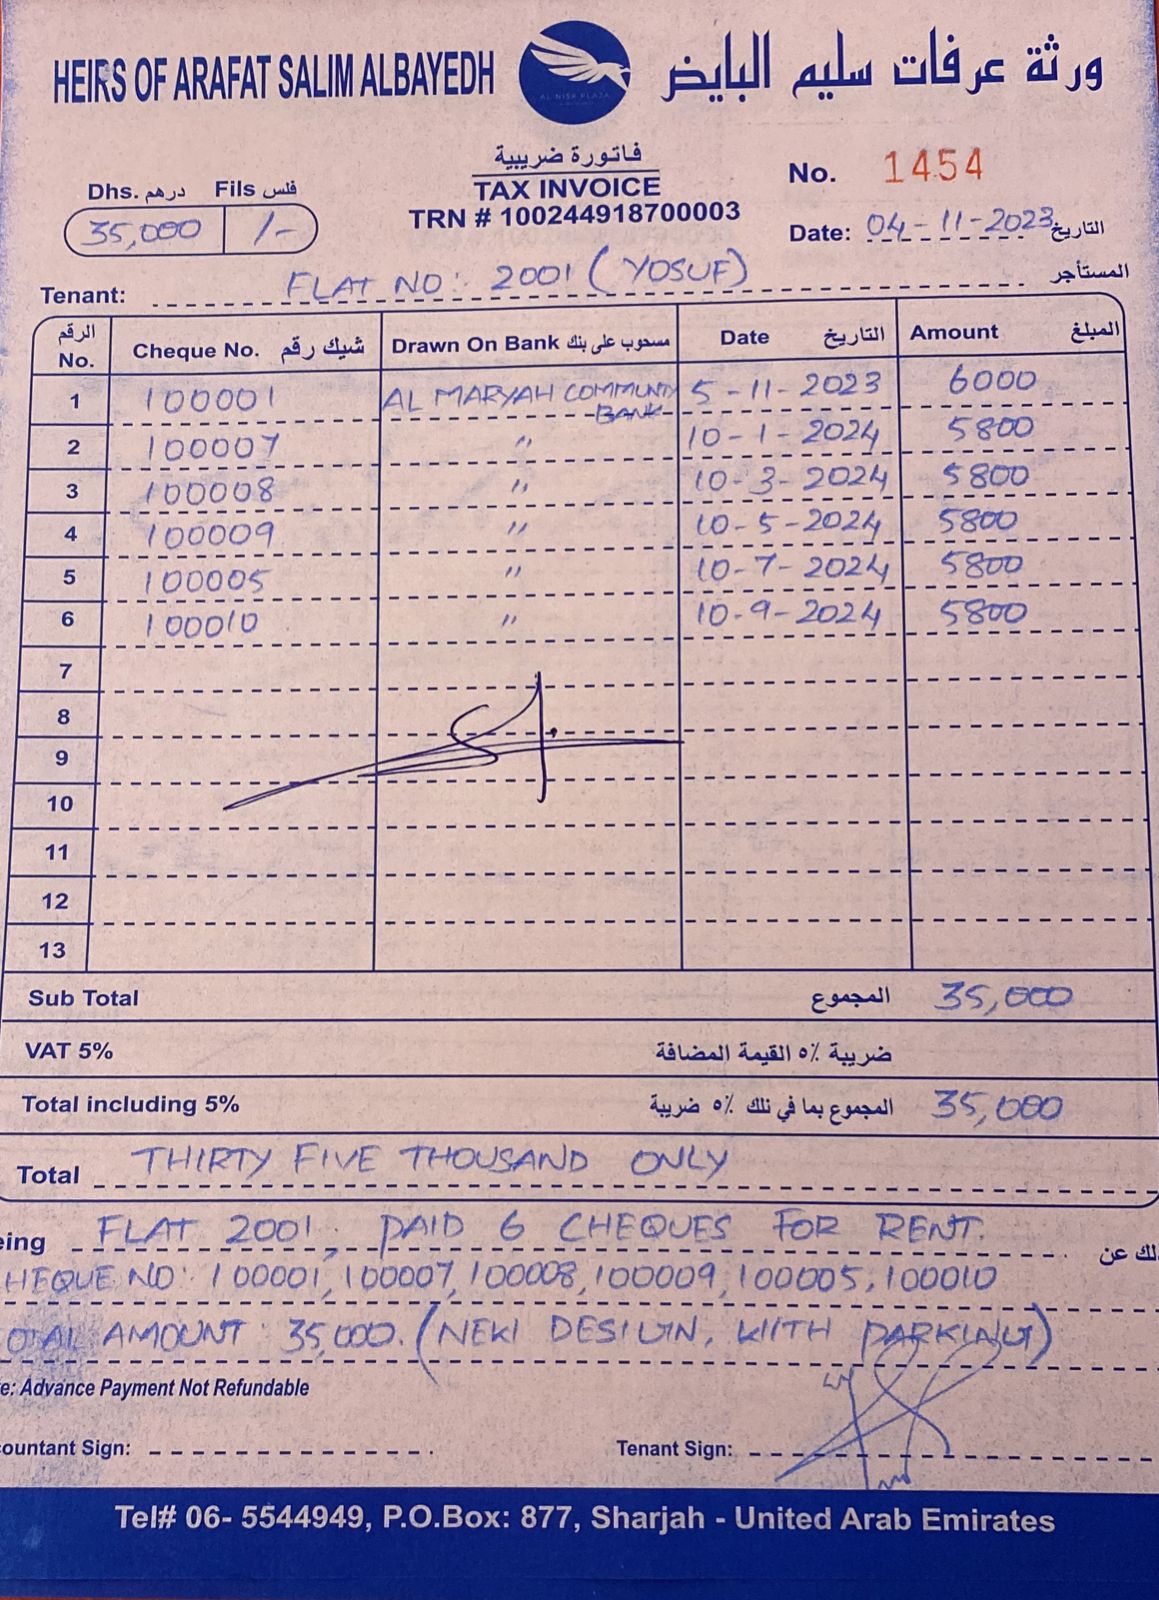 HEIRS OF ARAFAT SALIM ALBAYEDH
AL NISR PLAZA
ورثة عرفات سليم البايض
فاتورة ضريبية
TAX INVOICE
TRN # 100244918700003
No. 1454
Dhs. درهم Fils فلس
35,000 /-
Date: 04-11-2023 التاريخ
Tenant: FLAT NO: 2001 (YOSUF) المستأجر
الرقم No. Cheque No. شيك رقم Drawn On Bank مسحوب على بنك Date التاريخ Amount المبلغ
1 100001 AL MARYAH COMMUNITY BANK 5-11-2023 6000
2 100007 " 10-1-2024 5800
3 100008 " 10-3-2024 5800
4 100009 " 10-5-2024 5800
5 100005 " 10-7-2024 5800
6 100010 " 10-9-2024 5800
7
8
9
10
11
12
13
Sub Total المجموع 35,000
VAT 5% ضريبة ٥٪ القيمة المضافة
Total including 5% المجموع بما في ذلك ٥٪ ضريبة 35,000
Total THIRTY FIVE THOUSAND ONLY
eing FLAT 2001, PAID 6 CHEQUES FOR RENT. لك عن
HEQUE NO: 100001, 100007, 100008, 100009, 100005, 100010
OTAL AMOUNT: 35,000. ( DESIGN, PARKING)
e: Advance Payment Not Refundable
countant Sign: Tenant Sign:
Tel# 06- 5544949, P.O.Box: 877, Sharjah - United Arab Emirates